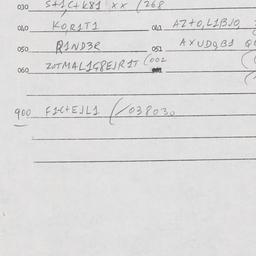 030 S+1C+K81 xx /268
040 KOR1T1 041 AZ+O,L1BJO
050 R1ND3R 051 AXUDQB1
060 ZOTMAL1G8EJR1T (002
900 F1C+EJL1 /038030